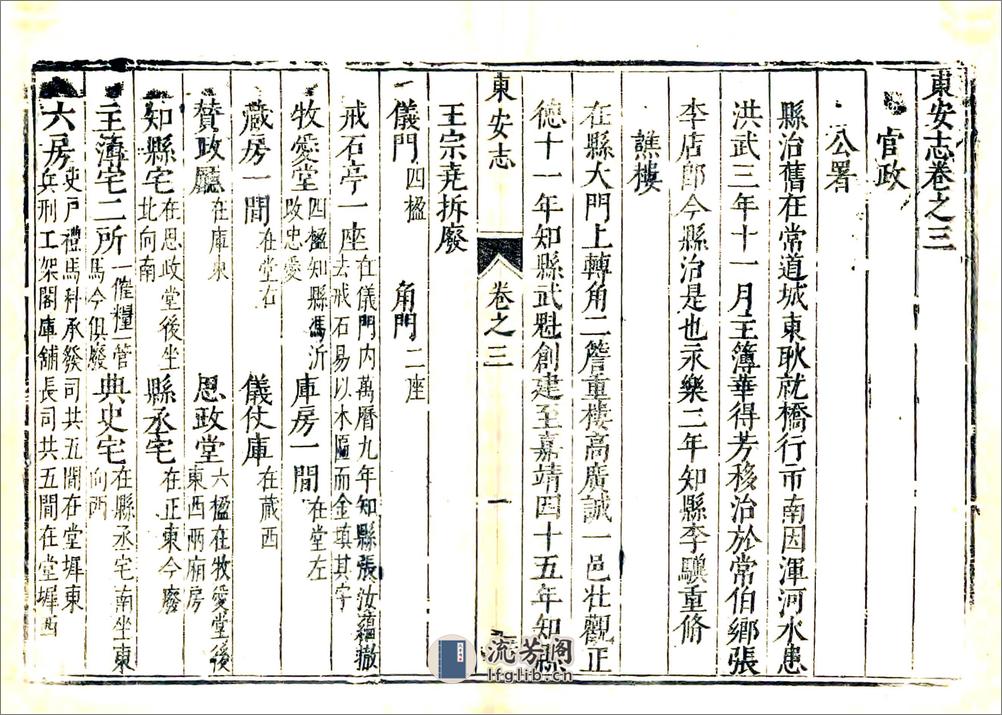 東安志卷之三
官政
公署
縣治舊在常道城東耿就橋行市南因渾河水患
洪武三年十一月主簿華得芳移治於常伯鄉張
李店郎今縣治是也永樂二年知縣李驥重脩
譙樓
在縣大門上轉角二簷重樓高廣誠一邑壯觀正
德十一年知縣武魁創建至嘉靖四十五年知縣
東安志 卷之三 一
王宗堯拆廢
儀門四楹 角門二座
戒石亭一座在儀門内萬曆九年知縣張汝蘊撤
去戒石易以木匾而金填其字
牧愛堂四楹知縣馮沂
改忠愛 庫房一間在堂左
藏房一間在堂右 儀仗庫在藏西
賛政廳在庫東 思政堂六楹在牧愛堂後
東西兩廂房
知縣宅在思政堂後坐
北向南 縣丞宅在正東今廢
主薄宅二所一管糧一管
馬今俱廢 典史宅在縣丞宅南坐東
向西
六房吏戶禮馬科承發司共五間在堂墀東
兵刑工架閣庫舖長司共五間在堂墀西
流芳閣
lfglib.cn